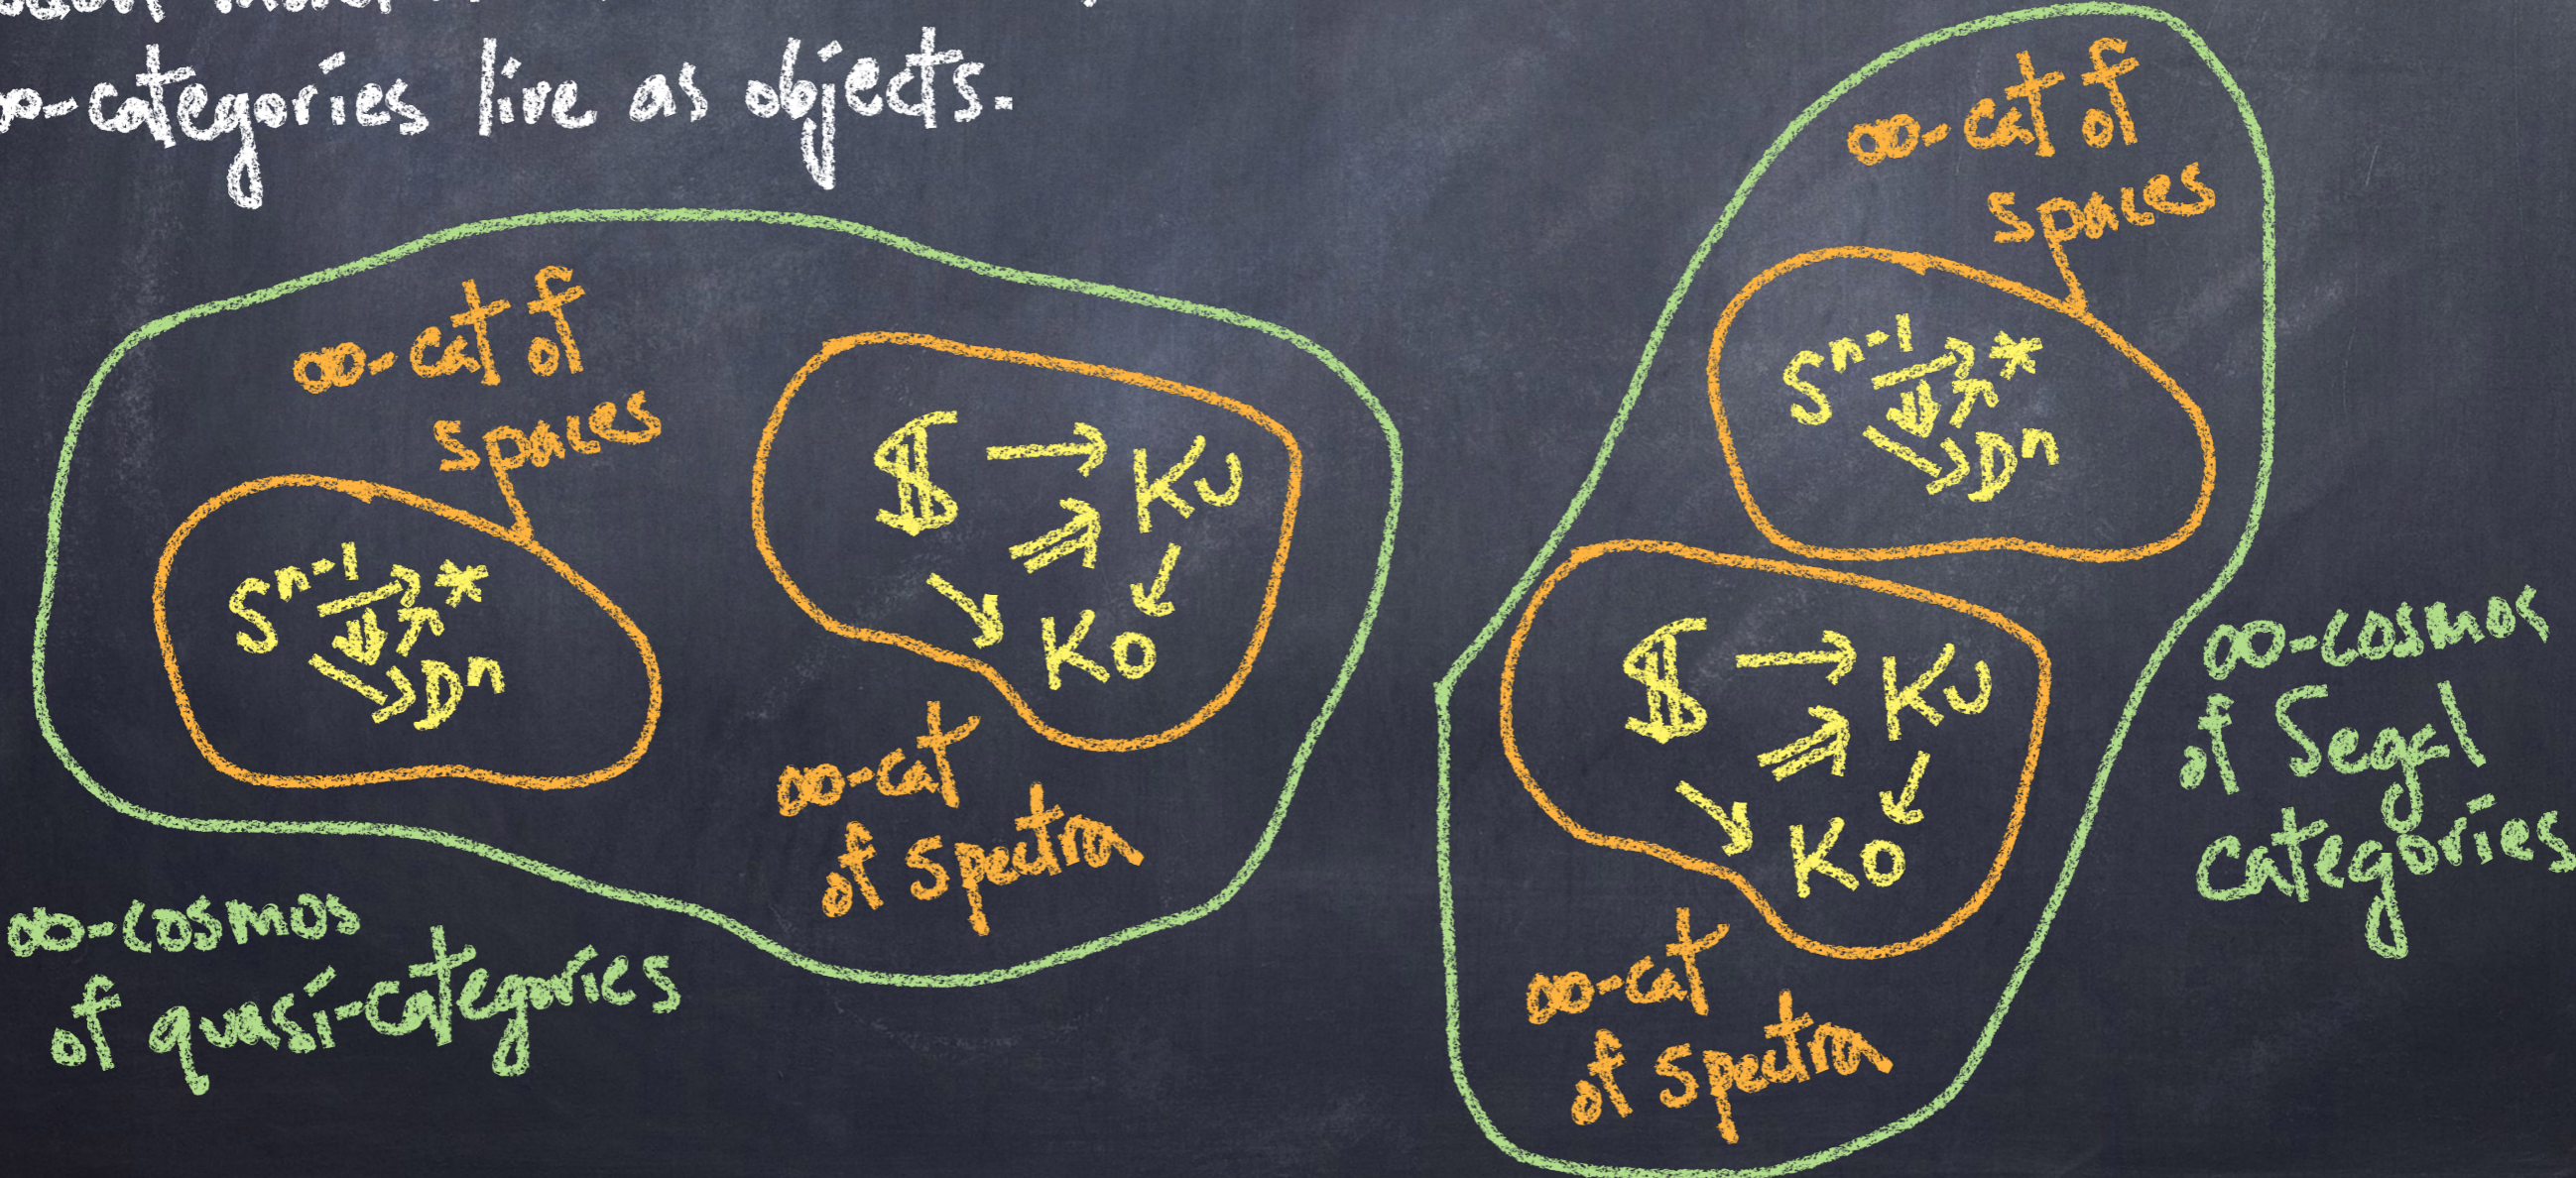 ∞-categories live as objects.
∞-cat of
spaces
S^{n-1} → *
⇓ ↗
↘ D^n
𝕊 → KU
⇒
↘ ↙
KO
∞-cat
of spectra
∞-cosmos
of quasi-categories
∞-cat of
spaces
S^{n-1} → *
⇓ ↗
↘ D^n
𝕊 → KU
⇒
↘ ↙
KO
∞-cat
of spectra
∞-cosmos
of Segal
categories